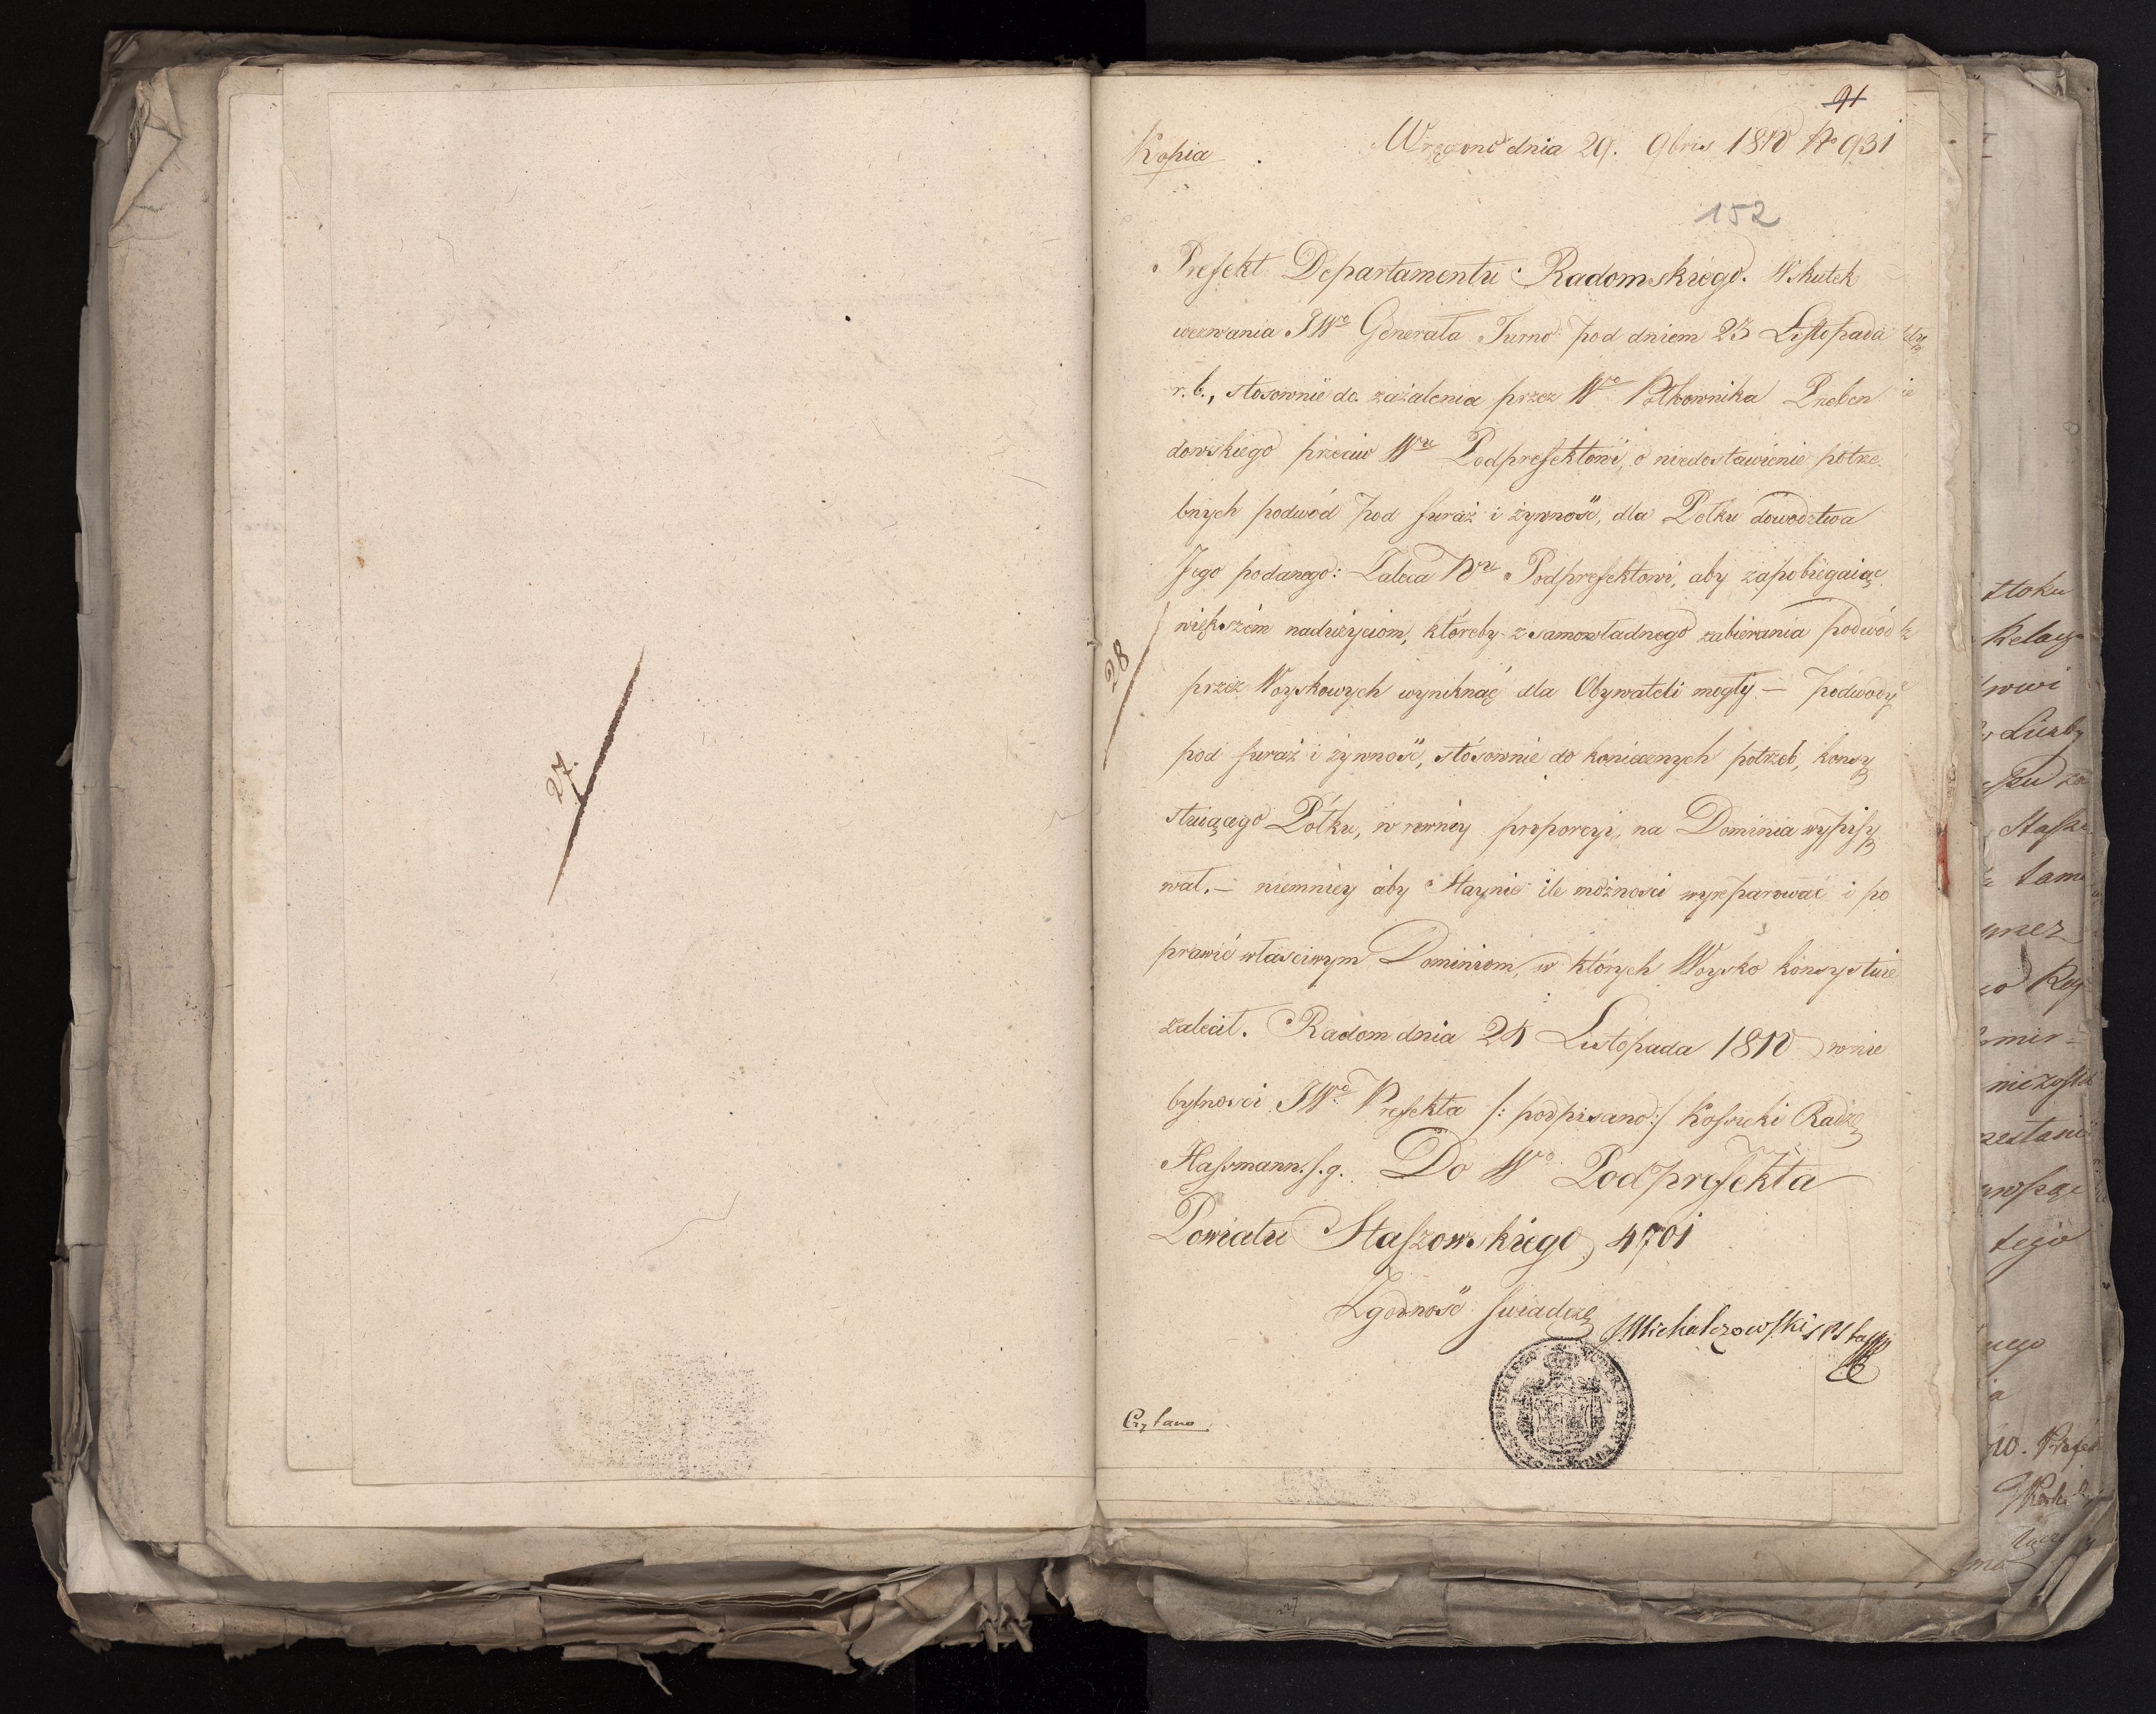 27.
91
Kopia
Wręczono dnia 29. 9bris 1810 No 931
152
Prefekt Departamentu Radomskiego. Wskutek
wezwania JWo Generała Turno pod dniem 23 Listopada
r. b., stosownie do zażalenia przez Wo Półkownika Przeben
dowskiego przeciw Wu Podprefektowi, o niedostawienie potrze
bnych podwód pod furaż i żywność, dla Półku dowodztwa
Jego podanego: Zaleca Wu Podprefektowi, aby zapobiegaiąc
28
większém nadużyciom, któreby z samowładnego zabierania podwód
przez Woyskowych wyniknąć dla Obywateli mogły — podwody
pod furaż i żywność, stósownie do koniecznych potrzeb, konsy
stuiącego Półku, w rewney proporcyi, na Dominia wypisy
wał. — niemniey aby Staynie ile możności wyreparować i po
prawić właściwym Dominiom, w których Woysko konsystuie
zalecił. Radom dnia 24 Listopada 1810 w nie
bytności JWo Prefekta /: podpisano :/ Kossecki Radzc
Hassmann. s. g. Do Wo Podprefekta
Powiatu Staszowskiego, 4701
Zgodność świadczę JMichalczowski
Czytano
tłoku
Staszo
tego